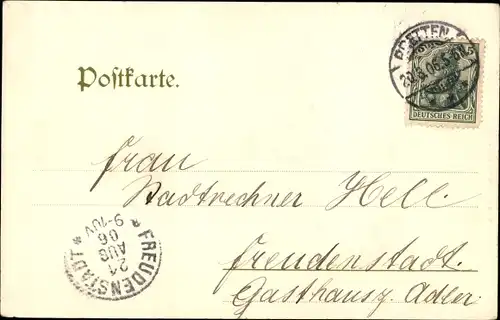 Postkarte.
BRETTEN
DEUTSCHES REICH
Frau
Stadtrechner Hell.
Freudenstadt.
Gasthaus z. Adler.
* FREUDENSTADT *
21
AUG
06
9-10V